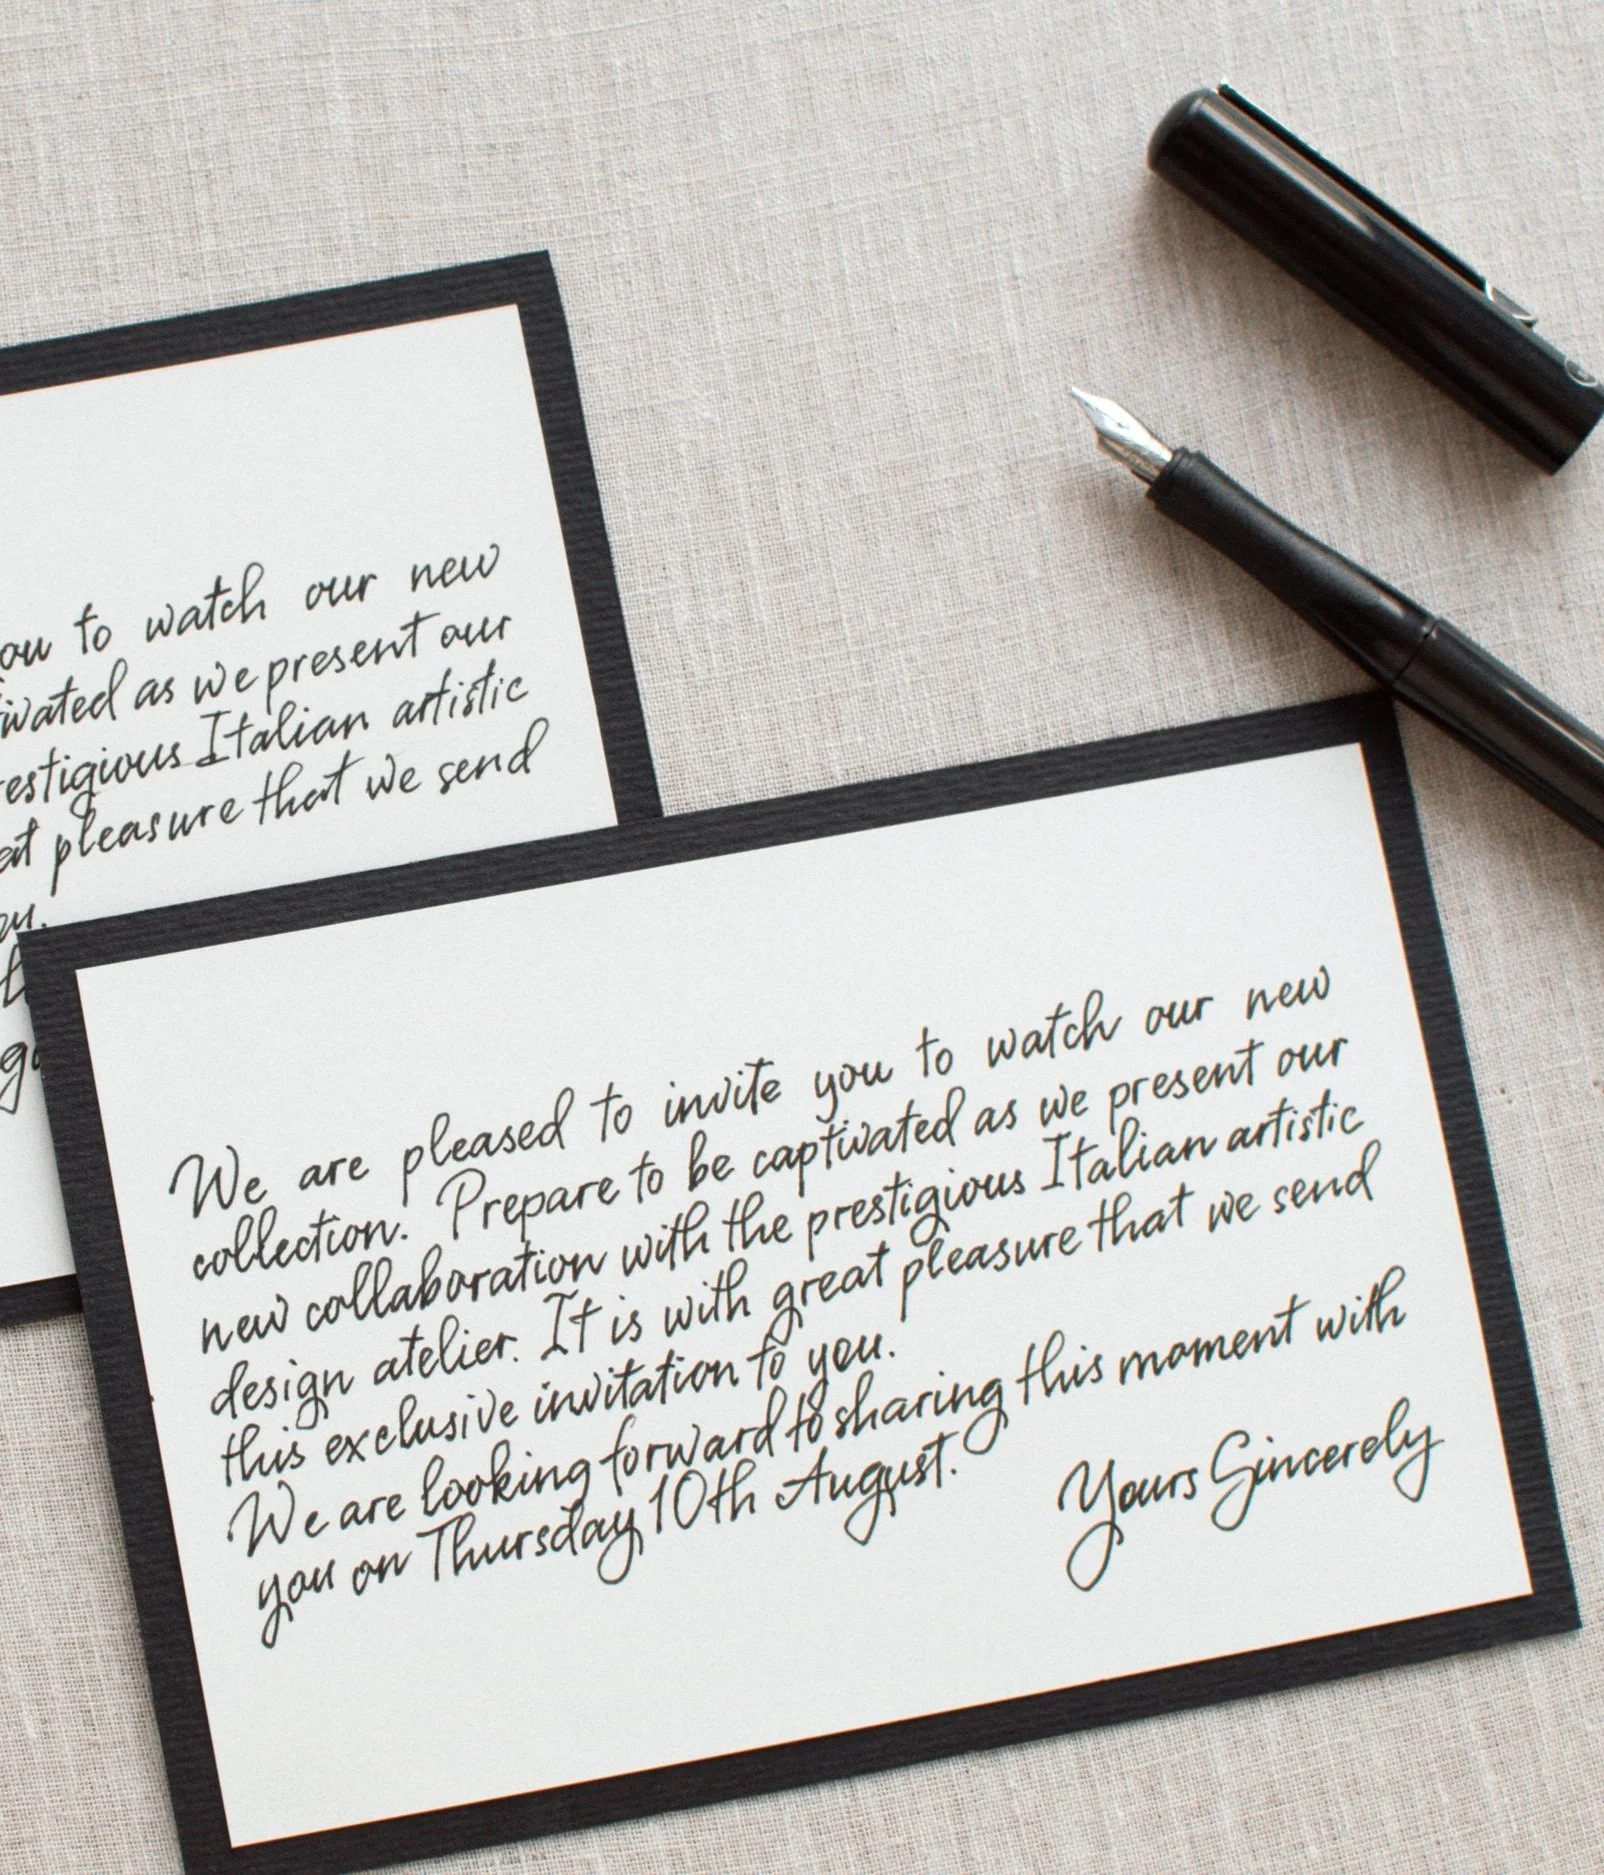 to watch our new
as we present our
Italian artistic
pleasure that we send
We are pleased to invite you to watch our new
collection. Prepare to be captivated as we present our
new collaboration with the prestigious Italian artistic
design atelier. It is with great pleasure that we send
this exclusive invitation to you.
We are looking forward to sharing this moment with
you on Thursday 10th August.
Yours Sincerely